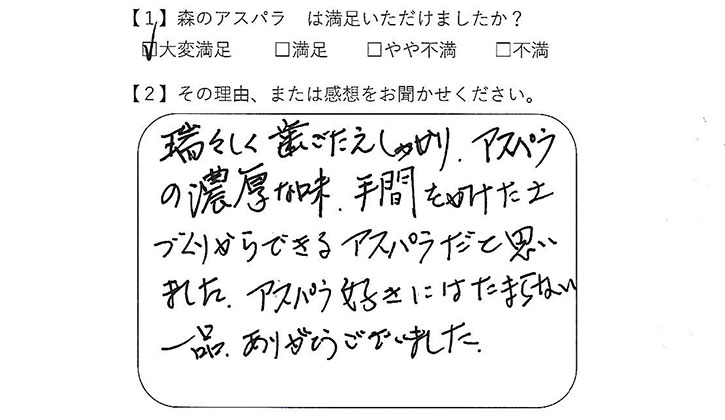 【１】森のアスパラ　は満足いただけましたか？
☑大変満足　□満足　□やや不満　□不満
【２】その理由、または感想をお聞かせください。
瑞々しく歯ごたえしっかり、アスパラ
の濃厚な味、手間をかけた土
づくりからできるアスパラだと思い
ました。アスパラ好きにはたまらない
一品。ありがとうございました。